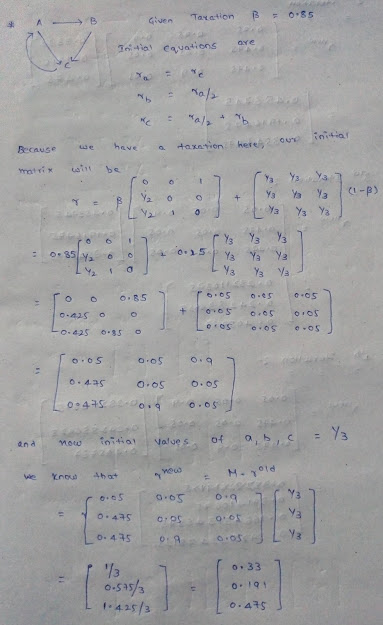 * A → B Given Taxation β = 0.85
C
Initial equations are
ra = rc
rb = ra/2
rc = ra/2 + rb
Because we have a taxation here, our initial
matrix will be
r = β [ 0 0 1 ; 1/2 0 0 ; 1/2 1 0 ] + [ 1/3 1/3 1/3 ; 1/3 1/3 1/3 ; 1/3 1/3 1/3 ] (1-β)
= 0.85 [ 0 0 1 ; 1/2 0 0 ; 1/2 1 0 ] + 0.15 [ 1/3 1/3 1/3 ; 1/3 1/3 1/3 ; 1/3 1/3 1/3 ]
= [ 0 0 0.85 ; 0.425 0 0 ; 0.425 0.85 0 ] + [ 0.05 0.05 0.05 ; 0.05 0.05 0.05 ; 0.05 0.05 0.05 ]
= [ 0.05 0.05 0.9 ; 0.475 0.05 0.05 ; 0.475 0.9 0.05 ]
and now initial values of a, b, c = 1/3
we know that r^new = M. r^old
= [ 0.05 0.05 0.9 ; 0.475 0.05 0.05 ; 0.475 0.9 0.05 ] [ 1/3 ; 1/3 ; 1/3 ]
= [ 1/3 ; 0.575/3 ; 1.425/3 ] = [ 0.33 ; 0.191 ; 0.475 ]